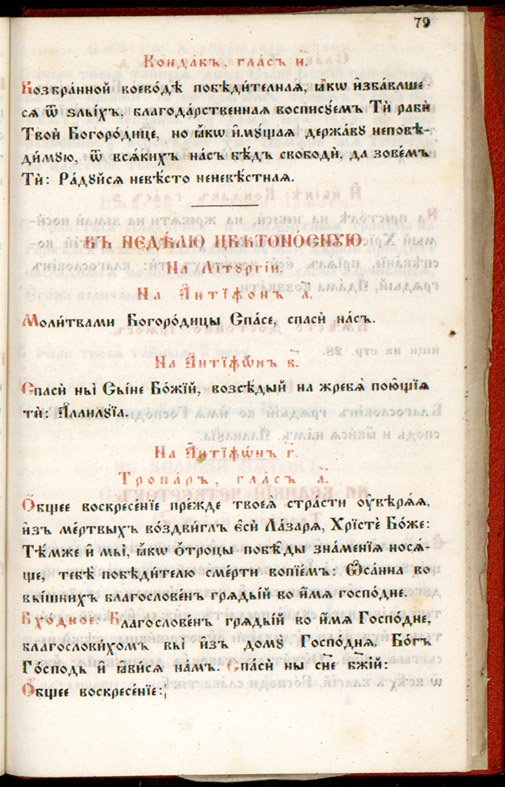 79
Кондакъ, гласъ и҃.
Возбранной воеводѣ побѣди́телная, ꙗ҆́кѡ и҆зба́влше-
сѧ ѿ ѕлы́хъ, благода́рственная воспису́емъ Ти̂ раби̂
Твои̂ Богоро́дице, но ꙗ҆́кѡ и҆му́щая держа́ву непобѣ-
ди́мую, ѿ вся́кихъ на́съ бѣ́дъ свободи̂, да зове́мъ
Ти̂: Ра́дуйся невѣ́сто неневѣ́стная.
ВЪ НЕДѢЛЮ ЦВѢТОНОСНУЮ.
На Літургі́и.
На А҆нтіфонъ а҃.
Моли́твами Богоро́дицы Спа́се, спаси̂ на́съ.
На А҆нтіфѡнъ в҃.
Спаси̂ ны̀ Сы́не Бо́жій, возсѣ́дый на жребѧ̀ пою́щїя
ти̂: Аллилу́їа.
На А҆нтіфѡнъ г҃.
Тропа́р, гла́съ а҃.
Ѻ҆́бщее воскресе́ніе пре́жде твоеѧ̀ стра́сти ᲂу҆вѣрѧ́ѧ,
и҆зъ ме́ртвыхъ воздви́глъ є҆си̂ Ла́заря, Хрїсте̂ Бо́же:
Тѣ́мже и҆ мы̀, ꙗ҆́кѡ ѻ҆́троцы побѣ́ды зна́менїя носѧ́-
ще, тебѣ̀ побѣди́телю сме́рти вопїе́мъ: Ѡ҆са́нна во
вы́шнихъ благослове́нъ грѧды́й во и҆́мѧ госпо́дне.
Вхо́дное: Благослове́нъ грѧды́й во и҆́мѧ Госпо́дне,
благослови́хомъ вы̀ и҆зъ до́му Госпо́днѧ, Бо́гъ
Го́сподь и҆ ꙗ҆ви́сѧ на́мъ. Спаси̂ ны сн҃е бж҃їй:
Ѻ҆́бщее воскресе́ніе: